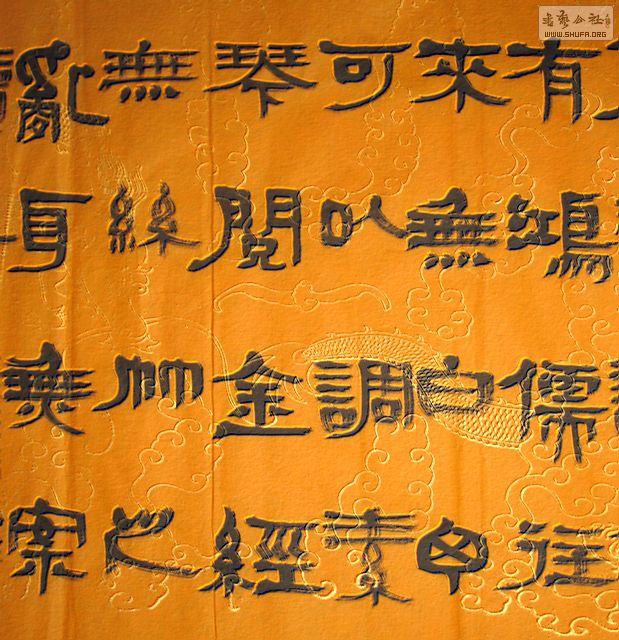 書藝公社
WWW.SHUFA.ORG
有鴻儒往
來無白
可以調素
琴閱金經
無絲竹之
亂耳無案